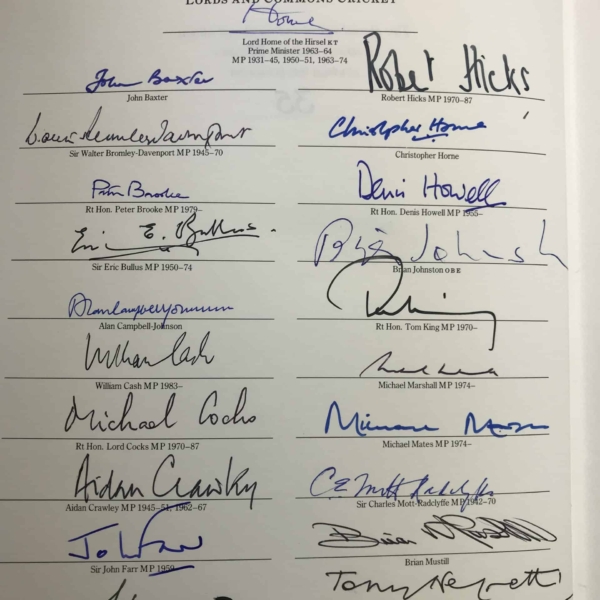 LORDS AND COMMONS CRICKET
Home
Lord Home of the Hirsel KT
Prime Minister 1963–64
MP 1931–45, 1950–51, 1963–74
John Baxter
John Baxter
Robert Hicks
Robert Hicks MP 1970–87
Sir Walter Bromley-Davenport MP 1945–70
Christopher Horne
Christopher Horne
Peter Brooke
Rt Hon. Peter Brooke MP 1979–
Denis Howell
Rt Hon. Denis Howell MP 1955–
Eric E. Bullus
Sir Eric Bullus MP 1950–74
Brian Johnston
Brian Johnston OBE
Alan Campbell-Johnson
Alan Campbell-Johnson
Tom King
Rt Hon. Tom King MP 1970–
William Cash
William Cash MP 1983–
Michael Marshall MP 1974–
Michael Cocks
Rt Hon. Lord Cocks MP 1970–87
Michael Mates
Michael Mates MP 1974–
Aidan Crawley
Aidan Crawley MP 1945–51, 1962–67
C E Mott Radclyffe
Sir Charles Mott-Radclyffe MP 1942–70
John Farr
Sir John Farr MP 1959
Brian
Brian Mustill
Tony